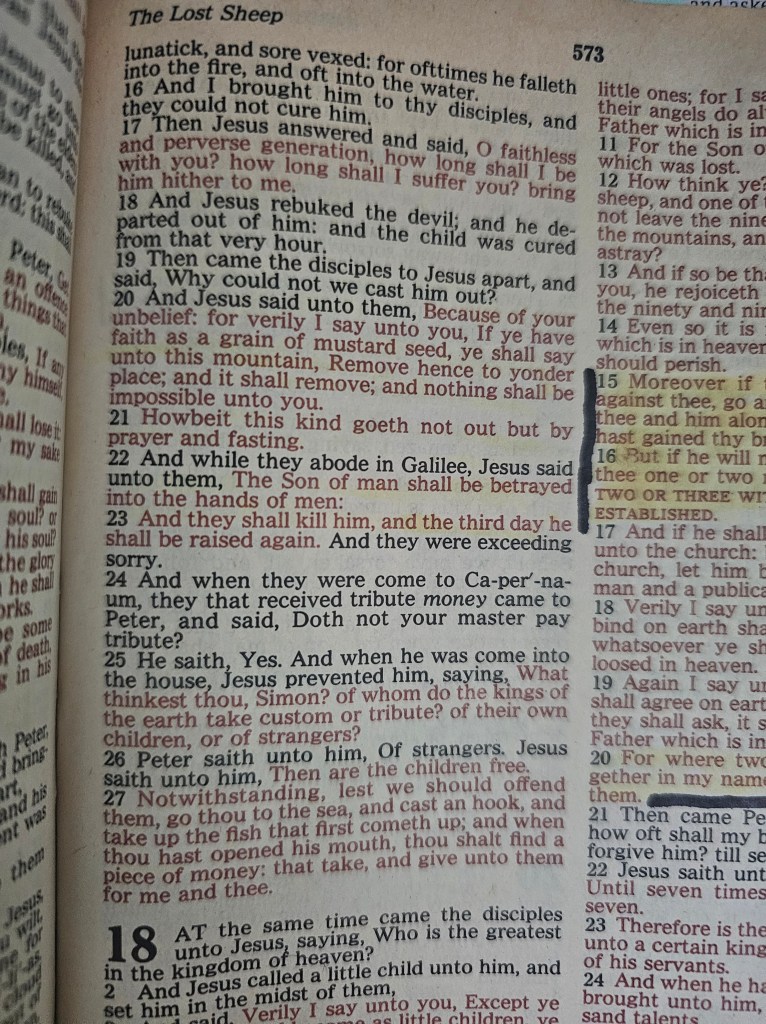 The Lost Sheep
573
lunatick, and sore vexed: for ofttimes he falleth
into the fire, and oft into the water.
16 And I brought him to thy disciples, and
they could not cure him.
17 Then Jesus answered and said, O faithless
and perverse generation, how long shall I be
with you? how long shall I suffer you? bring
him hither to me.
18 And Jesus rebuked the devil; and he de-
parted out of him: and the child was cured
from that very hour.
19 Then came the disciples to Jesus apart, and
said, Why could not we cast him out?
20 And Jesus said unto them, Because of your
unbelief: for verily I say unto you, If ye have
faith as a grain of mustard seed, ye shall say
unto this mountain, Remove hence to yonder
place; and it shall remove; and nothing shall be
impossible unto you.
21 Howbeit this kind goeth not out but by
prayer and fasting.
22 And while they abode in Galilee, Jesus said
unto them, The Son of man shall be betrayed
into the hands of men:
23 And they shall kill him, and the third day he
shall be raised again. And they were exceeding
sorry.
24 And when they were come to Ca-per′-na-
um, they that received tribute money came to
Peter, and said, Doth not your master pay
tribute?
25 He saith, Yes. And when he was come into
the house, Jesus prevented him, saying, What
thinkest thou, Simon? of whom do the kings of
the earth take custom or tribute? of their own
children, or of strangers?
26 Peter saith unto him, Of strangers. Jesus
saith unto him, Then are the children free.
27 Notwithstanding, lest we should offend
them, go thou to the sea, and cast an hook, and
take up the fish that first cometh up; and when
thou hast opened his mouth, thou shalt find a
piece of money: that take, and give unto them
for me and thee.
18 AT the same time came the disciples
unto Jesus, saying, Who is the greatest
in the kingdom of heaven?
2 And Jesus called a little child unto him, and
set him in the midst of them,
said, Verily I say unto you, Except ye
as little children, ye
little ones; for I
their angels do
Father which is in
11 For the Son
which was lost.
12 How think ye?
sheep, and one of
not leave the
the mountains,
astray?
13 And if so be
you, he rejoiceth
the ninety and
14 Even so it is
which is in
should perish.
15 Moreover if
against thee, go
thee and him
hast gained thy
16 But if he will
thee one or two
TWO OR THREE
ESTABLISHED.
17 And if he shall
unto the church:
church, let him
man and a
18 Verily I say
bind on earth
whatsoever ye
loosed in heaven.
19 Again I say
shall agree on
they shall ask, it
Father which is in
20 For where
gether in my
them.
21 Then came
how oft shall my
forgive him? till
22 Jesus saith
Until seven times
seven.
23 Therefore is the
unto a certain
of his servants.
24 And when he
brought unto him,
sand talents.